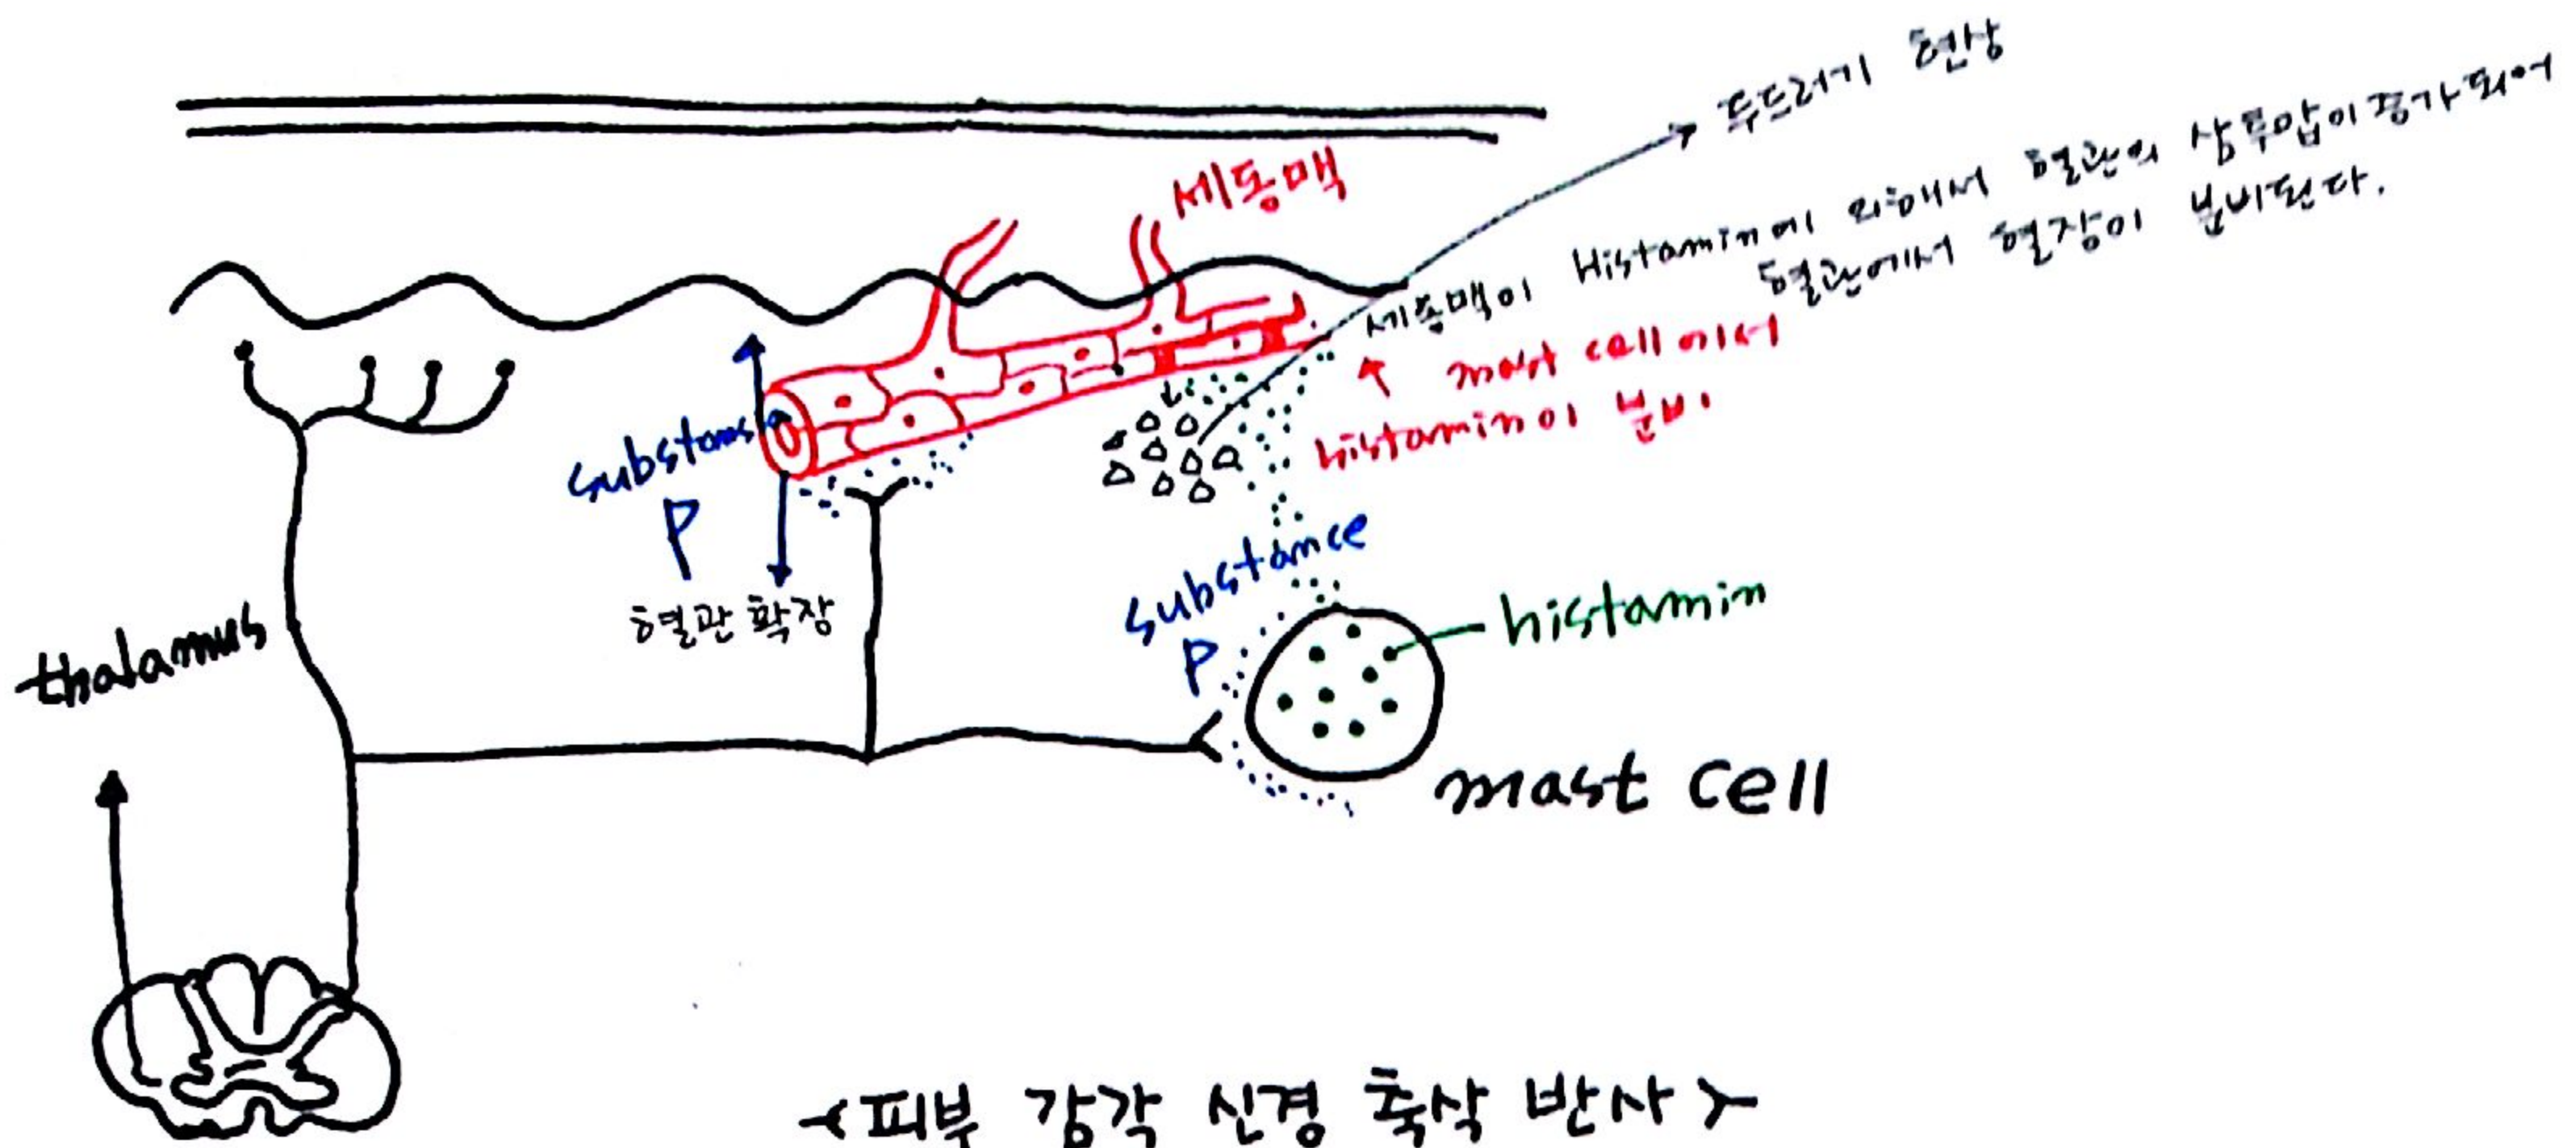 두드러기 현상
세동맥
세동맥이 Histamin에 의해서 혈관의 삼투압이 증가되어
혈관에서 혈장이 분비된다.
mast cell에서
histamin이 분비
substans
P
혈관 확장
substance
P
histamin
thalamus
mast cell
<피부 감각 신경 축삭 반사>